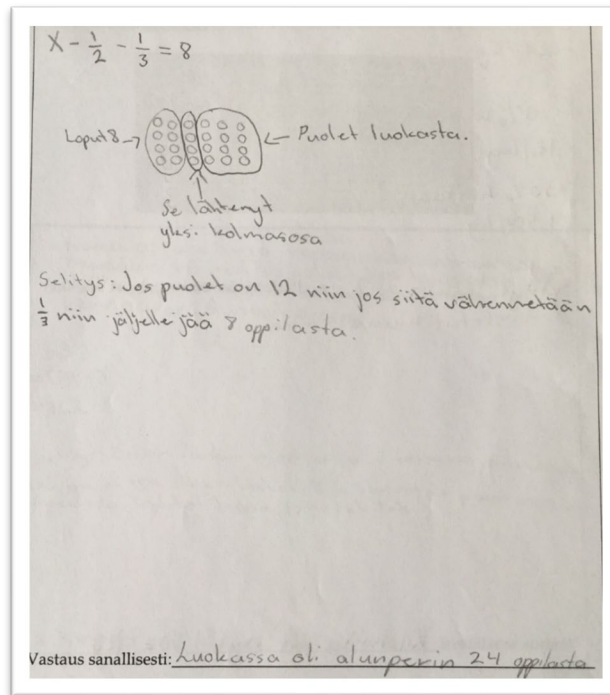 X - 1/2 - 1/3 = 8
Loput 8 → ← Puolet luokasta.
Se lähtenyt
yksi kolmasosa
Selitys: Jos puolet on 12 niin jos siitä vähennetään
1/3 niin jäljelle jää 8 oppilasta.
Vastaus sanallisesti: Luokassa oli alunperin 24 oppilasta